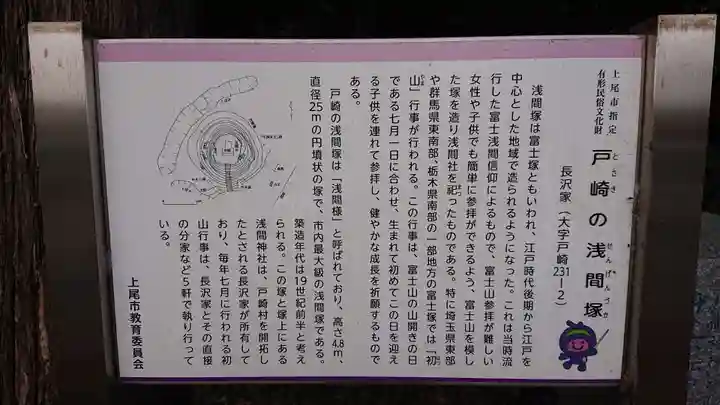 上尾市指定
有形民俗文化財
戸崎の浅間塚
とさき
せんげんづか
長沢家（大字戸崎231－2）
浅間塚は富士塚ともいわれ、江戸時代後期から江戸を
中心とした地域で造られるようになった。これは当時流
行した富士浅間信仰によるもので、富士山参拝が難しい
女性や子供でも簡単に参拝ができるよう、富士山を模し
た塚を造り浅間社を祀ったものである。特に埼玉県東部
や群馬県東南部、栃木県南部の一部地方の富士塚では「初
山」行事が行われる。この行事は、富士山の山開きの日
である七月一日に合わせ、生まれて初めてこの日を迎え
る子供を連れて参拝し、健やかな成長を祈願するもので
ある。
戸崎の浅間塚は「浅間様」と呼ばれており、高さ4.8m、
直径25mの円墳状の塚で、市内最大級の浅間塚である。
築造年代は19世紀前半と考え
られる。この塚と塚上にある
浅間神社は、戸崎村を開拓し
たとされる長沢家が所有して
おり、毎年七月に行われる初
山行事は、長沢家とその直接
の分家など5軒で執り行って
いる。
上尾市教育委員会